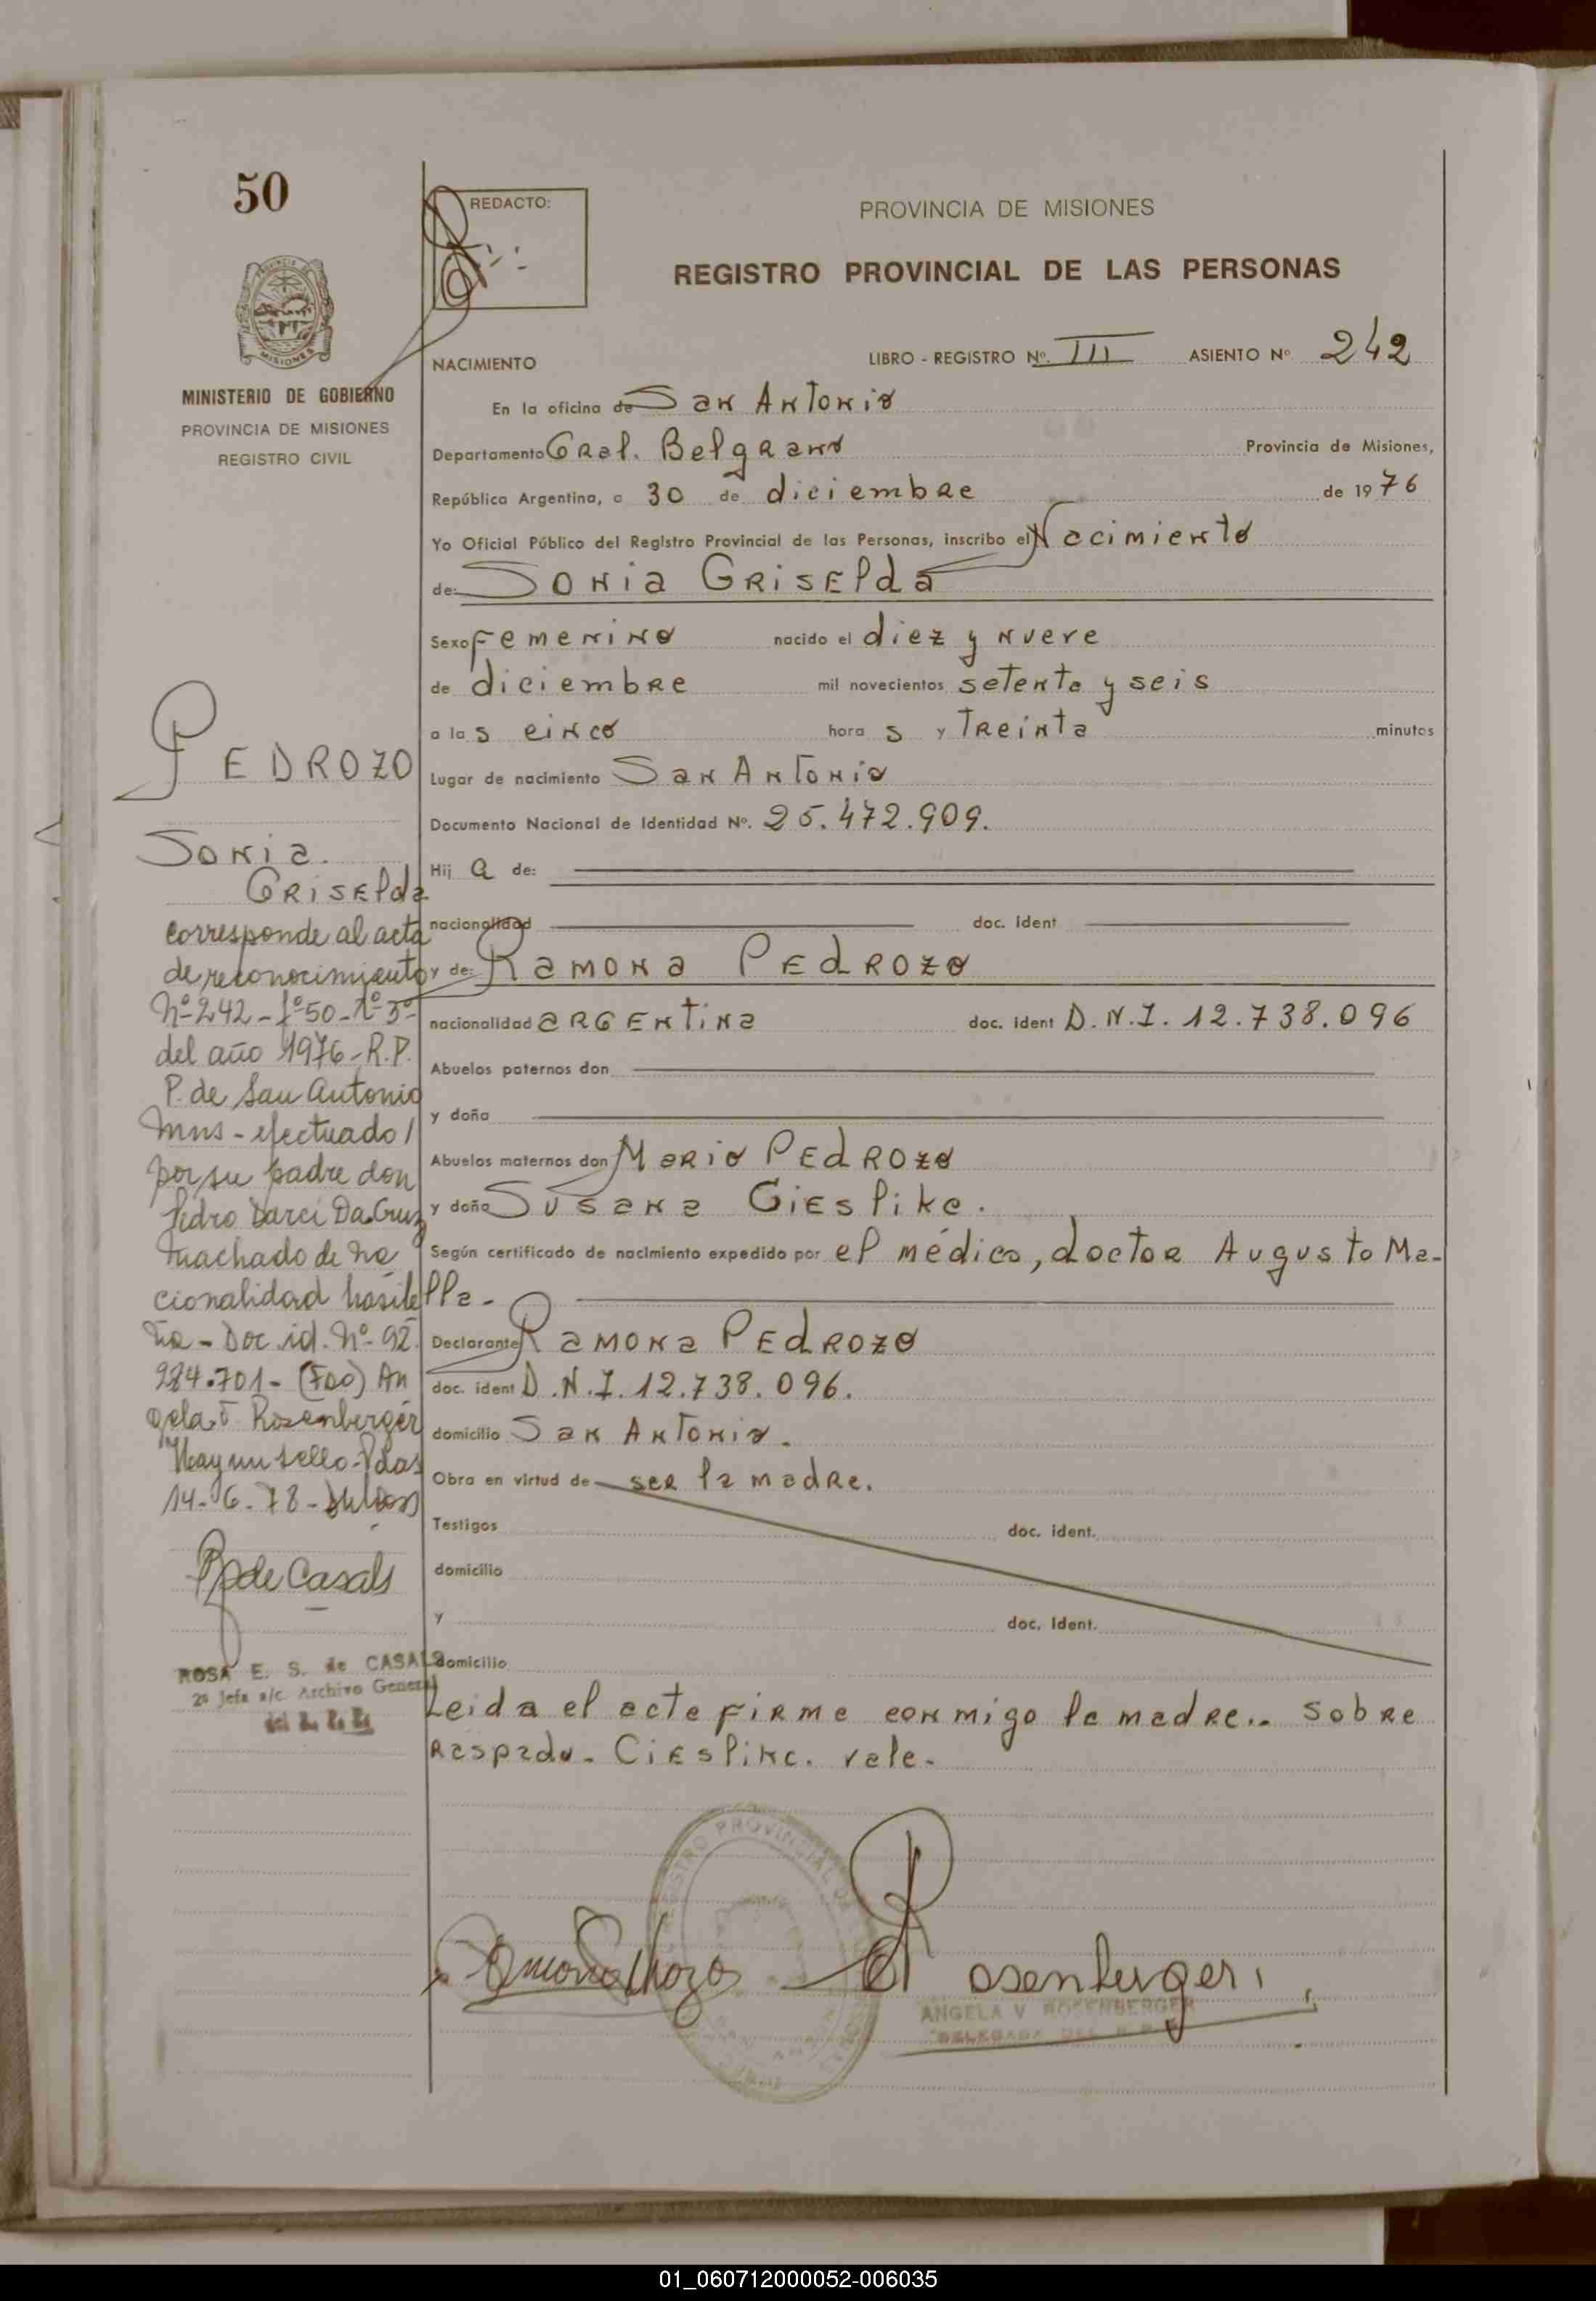 50
REDACTO:
PROVINCIA DE MISIONES
REGISTRO PROVINCIAL DE LAS PERSONAS
MISIONES
MINISTERIO DE GOBIERNO
PROVINCIA DE MISIONES
REGISTRO CIVIL
NACIMIENTO LIBRO - REGISTRO Nº. III ASIENTO Nº 242
En la oficina de San Antonio
Departamento Gral. Belgrano Provincia de Misiones,
República Argentina, a 30 de diciembre de 1976
Yo Oficial Público del Registro Provincial de las Personas, inscribo el Nacimiento
de: Sonia Griselda
Sexo Femenino nacido el diez y nueve
de diciembre mil novecientos setenta y seis
a las cinco horas y Treinta minutos
Lugar de nacimiento San Antonio
Documento Nacional de Identidad Nº. 25.472.909.
Hija de:
nacionalidad doc. ident
y de: Ramona Pedrozo
nacionalidad argentina doc. ident D.N.I. 12.738.096
Abuelos paternos don
y doña
Abuelos maternos don Mario Pedrozo
y doña Susana
Según certificado de nacimiento expedido por el médico, doctor Augusto Ma-
lla-
Declarante Ramona Pedrozo
doc. ident D.N.I. 12.738.096.
domicilio San Antonio.
Obra en virtud de ser la madre.
Testigos doc. ident.
domicilio
y doc. ident.
domicilio
Leida el acta firma conmigo la madre.. Sobre
Raspado- vale-
PEDROZO
Sonia.
Griselda
corresponde al acta
de reconocimiento
Nº 242-fº50-
del año 1976-R.P.
P. de San Antonio
Mns-efectuado/
por su padre don
Pedro Darci Da Cruz
Machado de na
cionalidad brasile
ña-Doc.id.Nº-92.
284.701-(Fdo) An
gela Rosenberger
Hay un sello-Pdas
14-6-78-
R de Casals
ROSA E. S. de CASALS
2ª Jefa a/c. Archivo General
del R. P. P.
REGISTRO PROVINCIAL DE
Rosenberger
ANGELA V ROSENBERGER
DELEGADA DEL R.P.P.
01_060712000052-006035